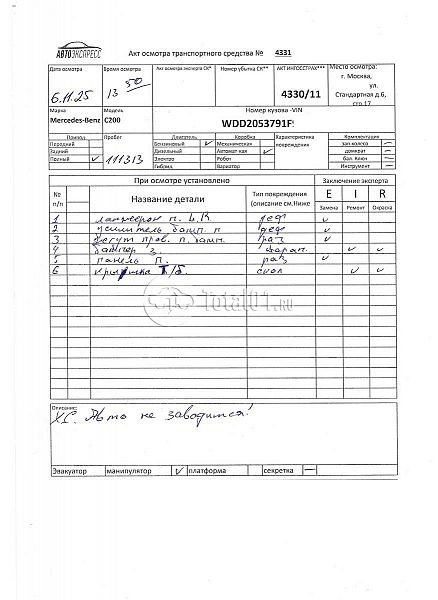 АВТОЭКСПРЕСС
Акт осмотра транспортного средства № 4331
Дата осмотра Время осмотра Акт осмотра эксперта СК* Номер убытка СК** АКТ ИНГОССТРАХ*** Место осмотра:
г. Москва,
ул.
Стандартная д.6,
стр.17
6.11.25 13 50 4330/11
Марка Модель Номер кузова -VIN
Mercedes-Benz C200 WDD2053791F
Привод Пробег Двигатель Коробка Характеристика повреждения Комплектация
Передний Бензиновый V Механическая зап.колесо —
Задний Дизельный Автомат-кая V домкрат —
Полный V 111313 Электро Робот бал. Ключ —
Гибрид Вариатор Инструмент —
При осмотре установлено Заключение эксперта
№ п/п Название детали Тип повреждения (описание см.Ниже E I R
Замена Ремонт Окраска
1 п. деф V
2 усилитель бамп. п деф V
3 п. бамп. раз V
4 бампер з. V V
5 панель п. раз V
6 крышка т/б. скол V V
Total01.RU
Описание:
Авто не заводится!
Эвакуатор манипулятор V платформа секретка —